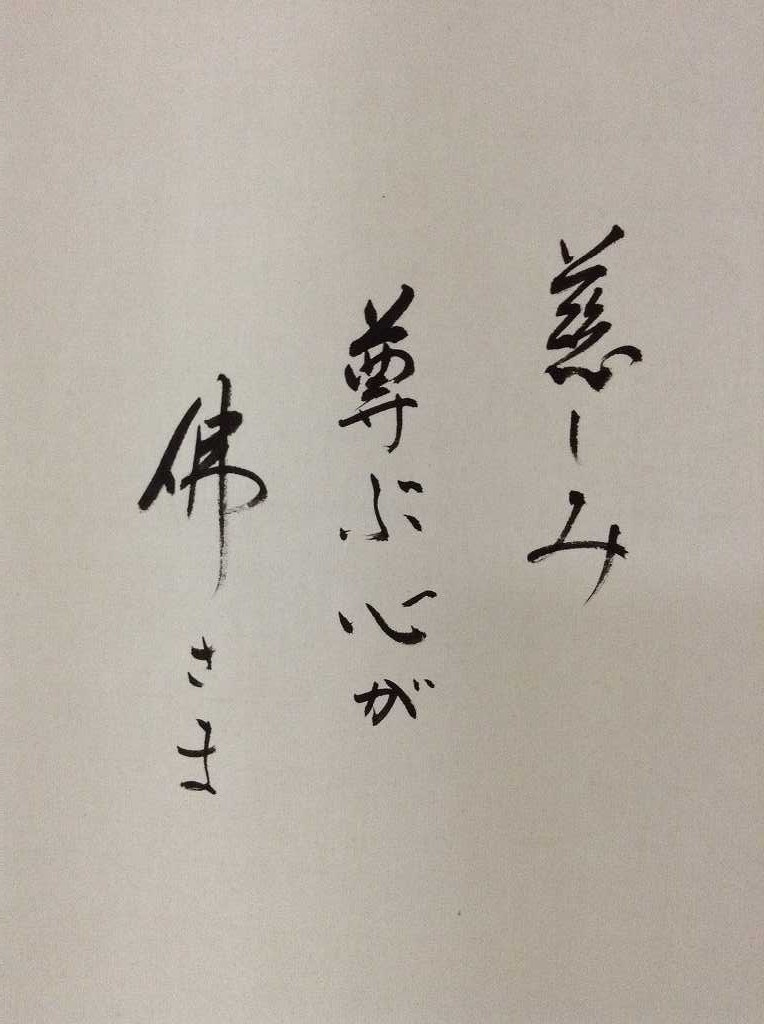 慈しみ
尊ぶ心が
佛さま